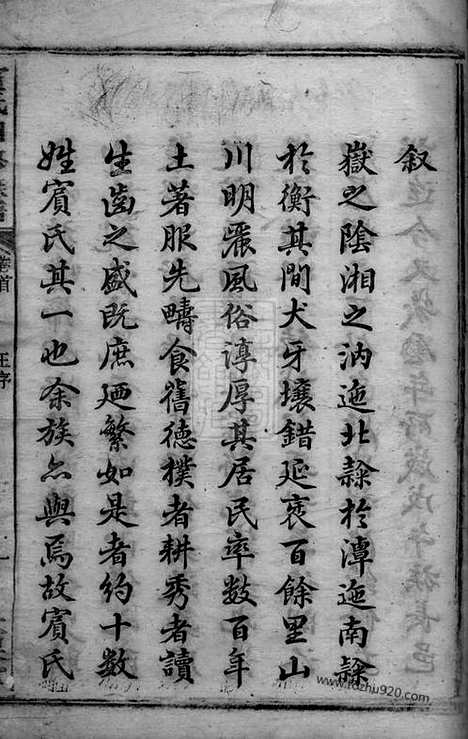 叙
嶽之陰湘之汭迤北隸於潭迤南隸
於衡其間犬牙壤錯延袤百餘里山
川明麗風俗淳厚其居民率數百年
土著服先疇食舊德樸者耕秀者讀
生齒之盛既庶迺繁如是者約十數
姓賓氏其一也余族亦與焉故賓氏
卷首
王序
www.fozhu920.com